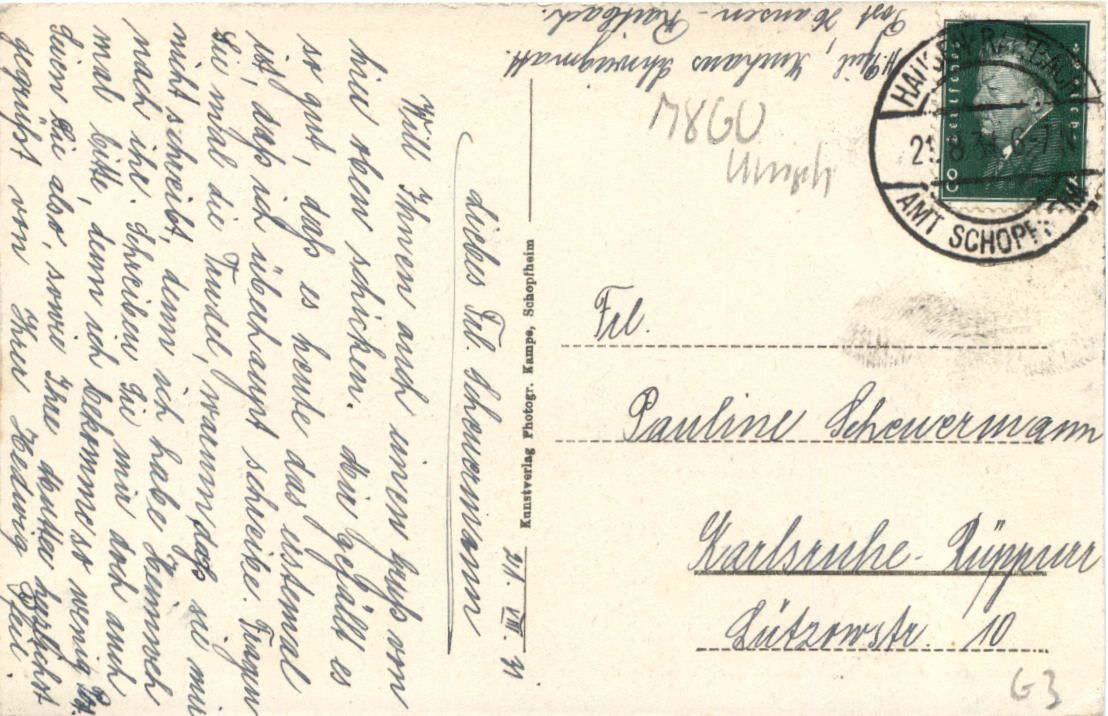 H. Pfeil, Neuhaus Schweigmatt
Post Hausen-Raitbach.
HAUSEN-RAITBACH
21.8.31. 6-7 N
AMT SCHOPFHEIM
8
8
M860
21. VIII. 31
Liebes Frl. Scheuermann
Will Ihnen auch einen Gruß von
hier oben schicken. Mir gefällt es
so gut, daß es heute das erstemal
ist, daß ich überhaupt schreibe. Fragen
Sie mal die Trudel, warum daß sie mir
nicht schreibt, denn ich habe Heimweh
nach ihr. Schreiben Sie mir doch auch
mal bitte, denn ich bekomme so wenig Post.
Seien Sie also, sowie Ihre Mutter herzlichst
gegrüßt von Ihrer Hedwig Pfeil
Kunstverlag Photogr. Kampe, Schopfheim
Frl.
Pauline Scheuermann
Karlsruhe-Rüppurr
Lützowstr. 10
G3